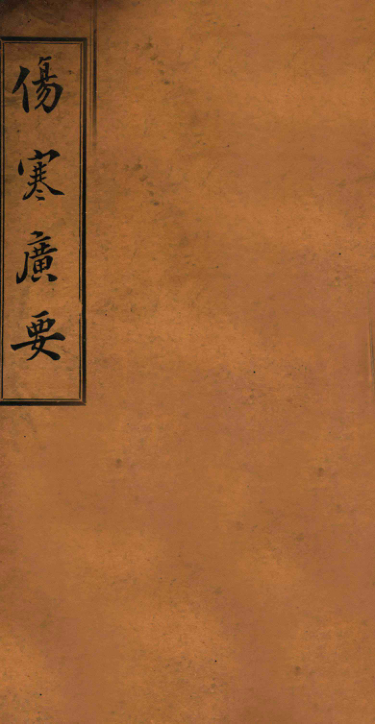 傷寒廣要